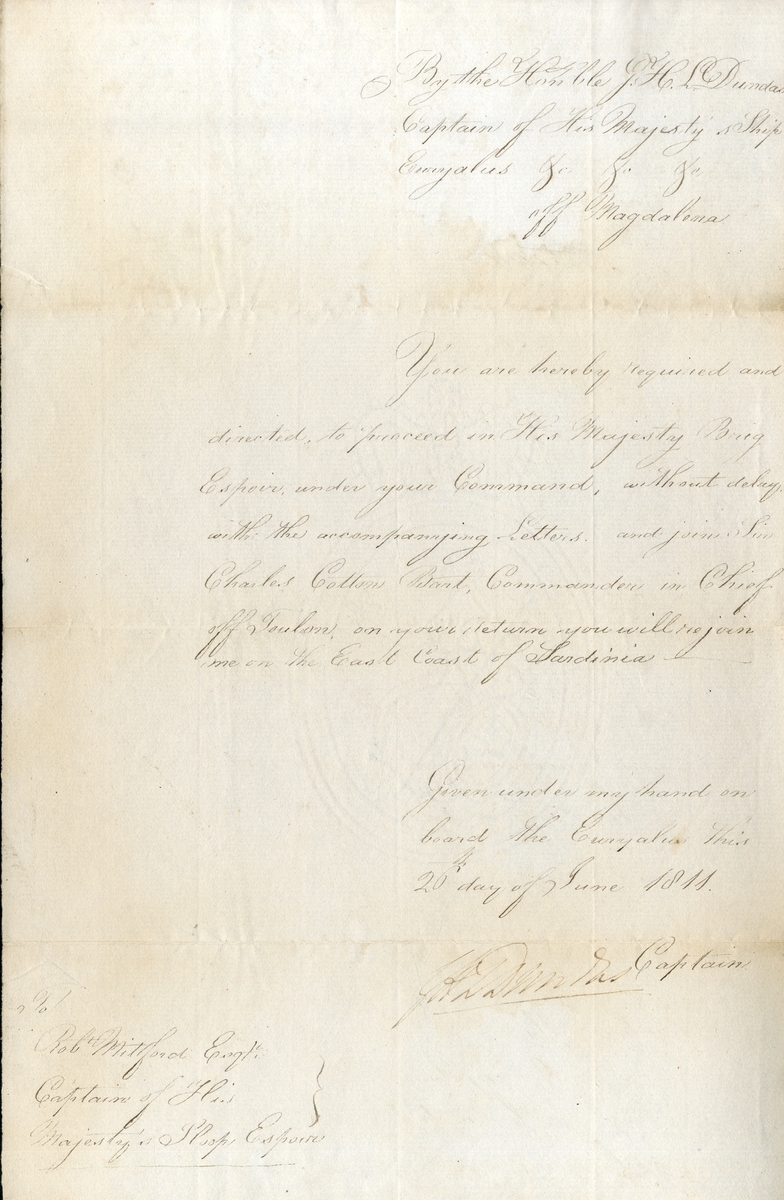 By the Honble G. H. L. Dundas
Captain of His Majesty's Ship
Euryalus &c &c &c
off Magdalena
You are hereby required and
directed, to proceed in His Majesty Brig
Espoir, under your Command, without delay,
with the accompanying Letters. and join Sir
Charles Cotton Bart, Commander in Chief
off Toulon, on your return you will rejoin
me on the East Coast of Sardinia
Given under my hand on
board the Euryalus this
26th day of June 1811.
GHLDundas Captain
To
Robt Mitford Esqr.
Captain of His
Majesty's Sloop Espoir